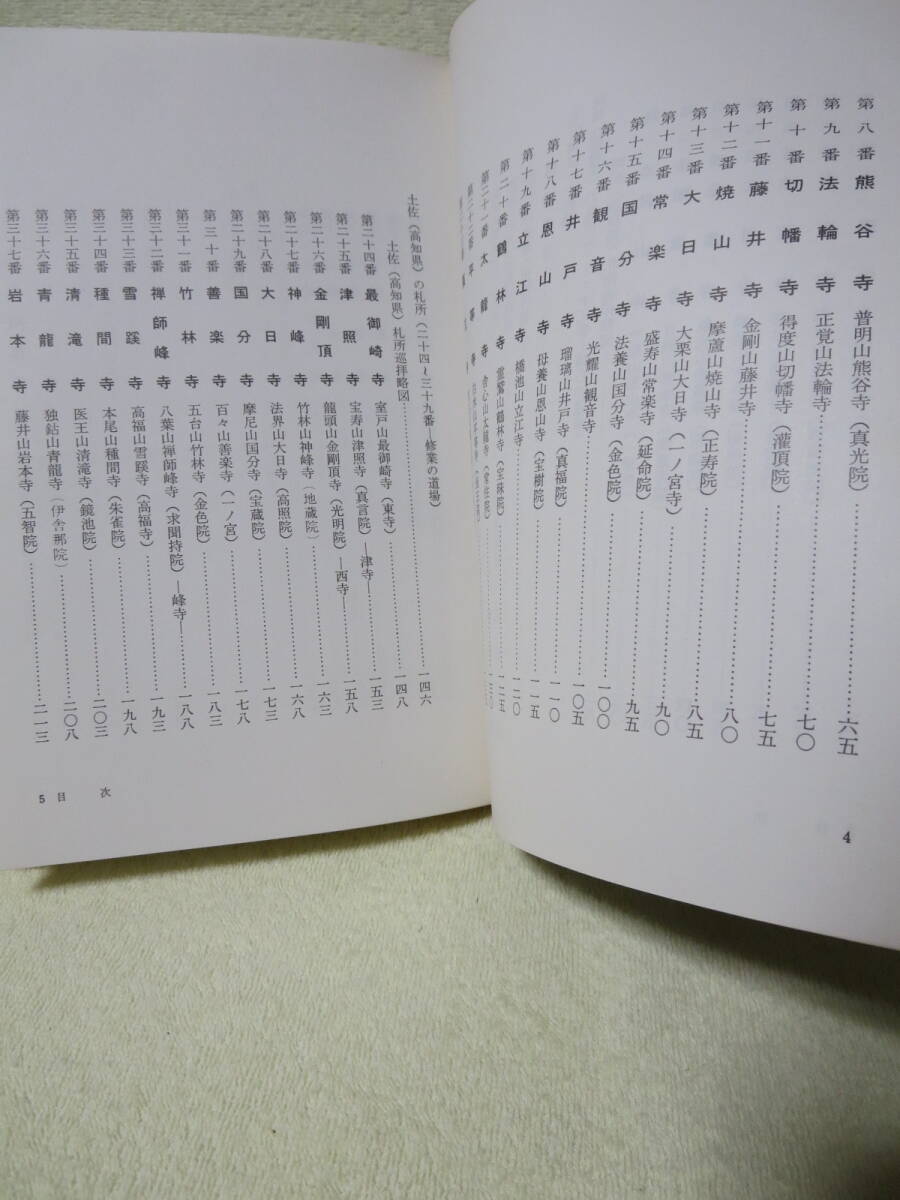 第八番 熊谷寺 普明山熊谷寺(真光院)……六五
第九番 法輪寺 正覚山法輪寺……七〇
第十番 切幡寺 得度山切幡寺(灌頂院)……七五
第十一番 藤井寺 金剛山藤井寺……八〇
第十二番 焼山寺 摩廬山焼山寺(正寿院)……八五
第十三番 大日寺 大栗山大日寺(一ノ宮寺)……九〇
第十四番 常楽寺 盛寿山常楽寺(延命院)……九五
第十五番 国分寺 法養山国分寺(金色院)……一〇〇
第十六番 観音寺 光耀山観音寺……一〇五
第十七番 井戸寺 瑠璃山井戸寺(真福院)……一一〇
第十八番 恩山寺 母養山恩山寺(宝樹院)……一一五
第十九番 立江寺 橋池山立江寺……一二〇
第二十番 鶴林寺 霊鷲山鶴林寺(宝珠院)……一二五
第二十一番 太龍寺 舎心山太龍寺(常住院)……一三〇
4
土佐(高知県)の札所(二十四~三十九番―修業の道場)……一四六
土佐(高知県)札所巡拝略図……一四八
第二十四番 最御崎寺 室戸山最御崎寺(東寺)……一五三
第二十五番 津照寺 宝寿山津照寺(真言院)―津寺―……一五八
第二十六番 金剛頂寺 龍頭山金剛頂寺(光明院)―西寺―……一六三
第二十七番 神峰寺 竹林山神峰寺(地蔵院)……一六八
第二十八番 大日寺 法界山大日寺(高照院)……一七三
第二十九番 国分寺 摩尼山国分寺(宝蔵院)……一七八
第三十番 善楽寺 百々山善楽寺(一ノ宮)……一八三
第三十一番 竹林寺 五台山竹林寺(金色院)……一八八
第三十二番 禅師峰寺 八葉山禅師峰寺(求聞持院)―峰寺―……一九三
第三十三番 雪蹊寺 高福山雪蹊寺(高福寺)……一九八
第三十四番 種間寺 本尾山種間寺(朱雀院)……二〇三
第三十五番 清滝寺 医王山清滝寺(鏡池院)……二〇八
第三十六番 青龍寺 独鈷山青龍寺(伊舎那院)……二一三
第三十七番 岩本寺 藤井山岩本寺(五智院)……
5 目次